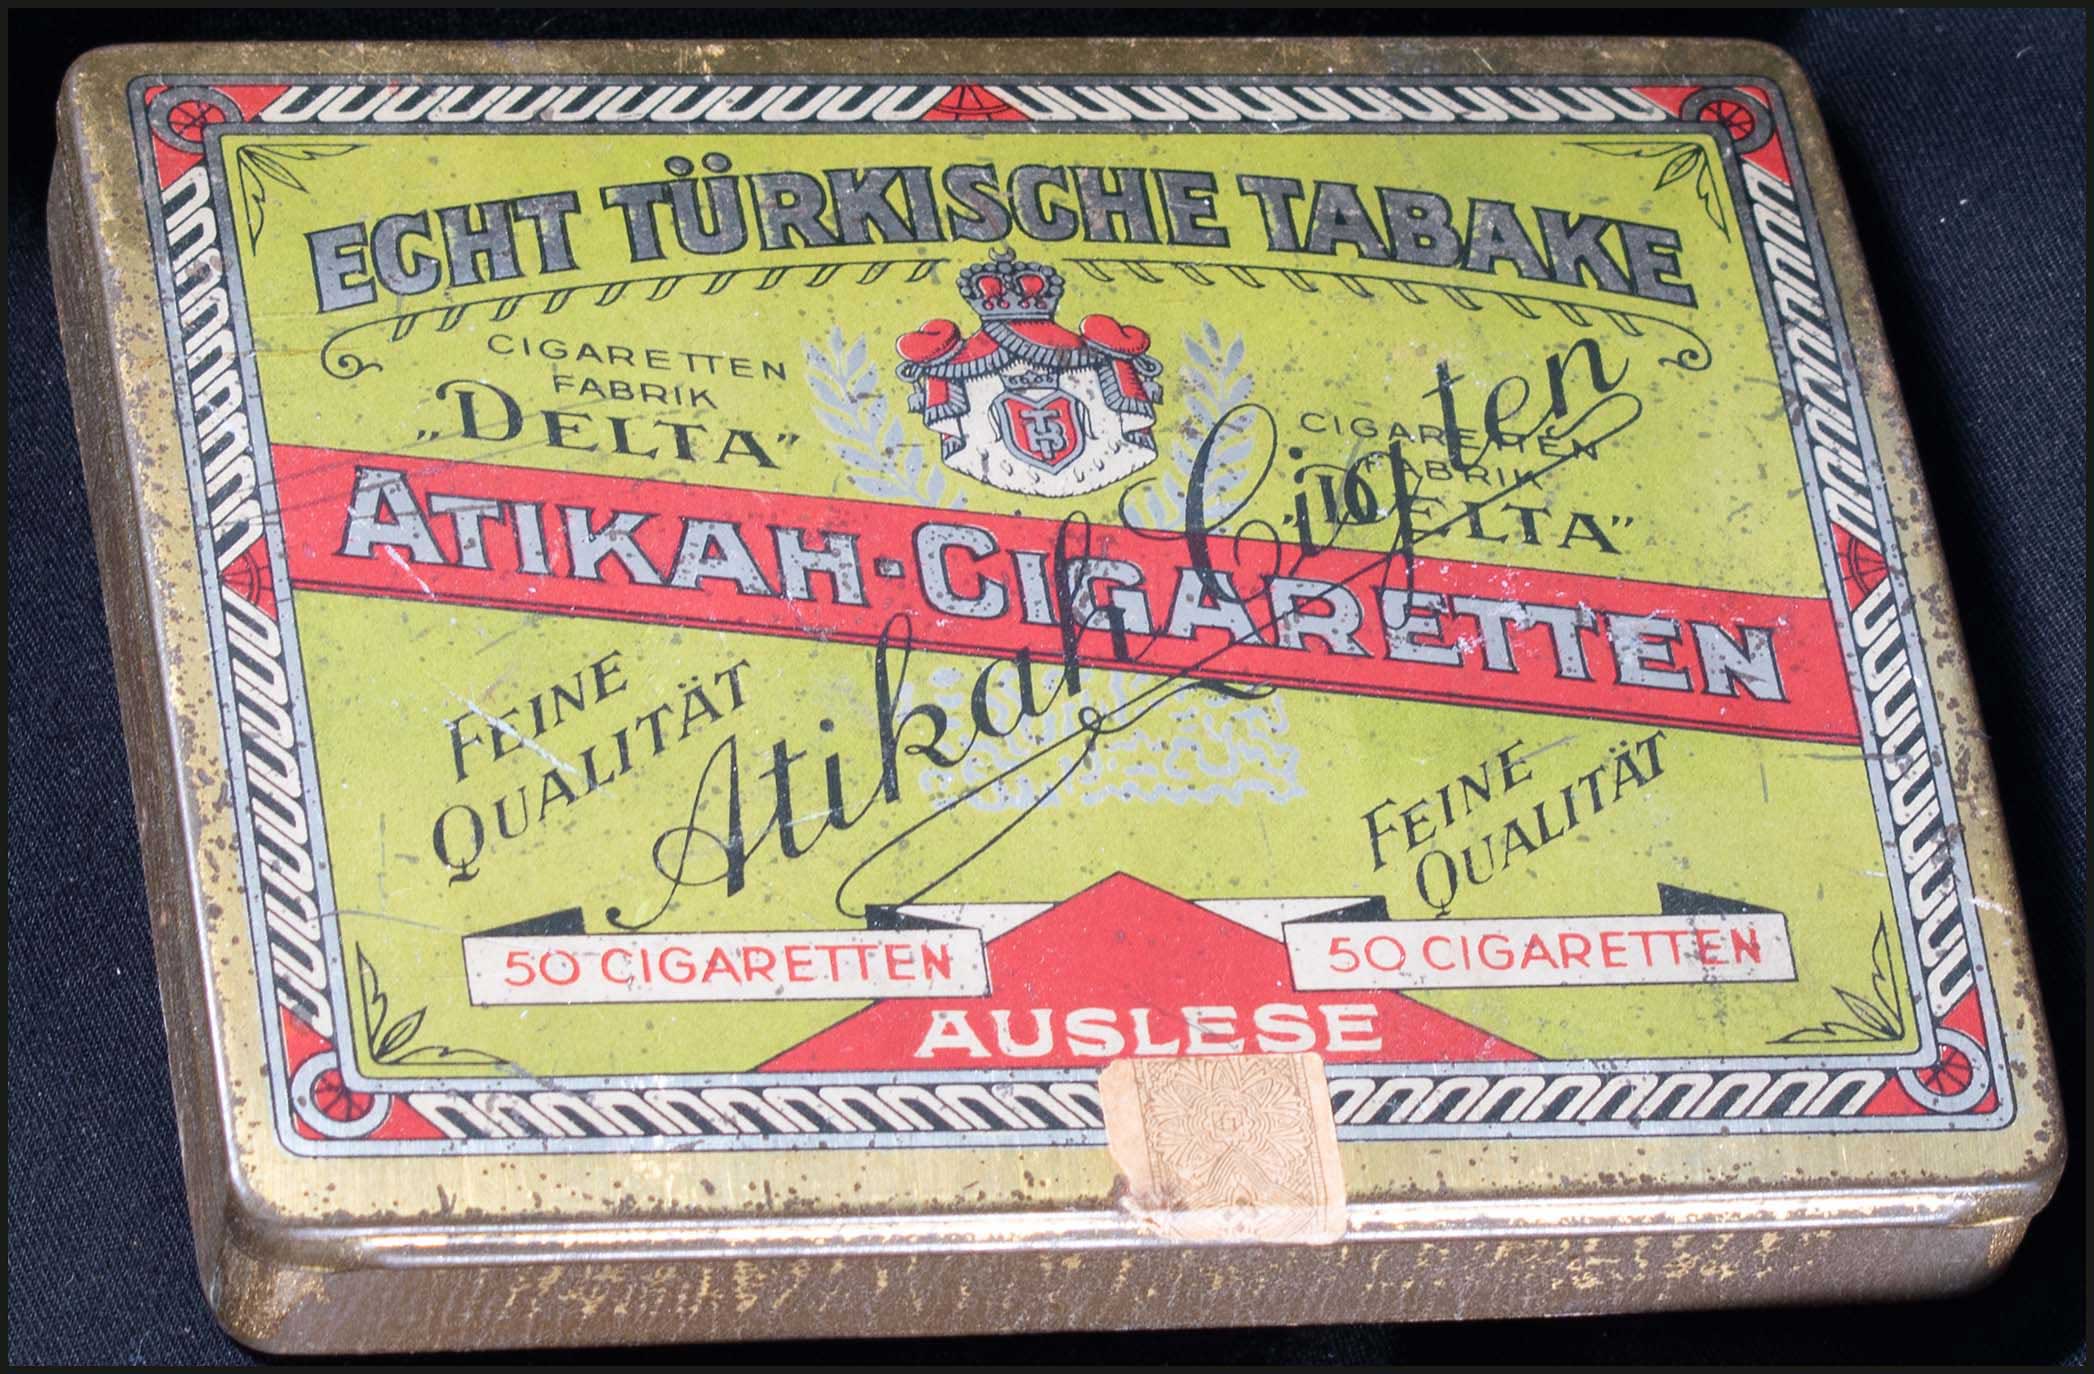 ECHT TÜRKISCHE TABAKE
CIGARETTEN
FABRIK
„DELTA”
CIGARETTEN
FABRIK
„DELTA”
ATIKAH-CIGARETTEN
Atikah
FEINE
QUALITÄT
FEINE
QUALITÄT
50 CIGARETTEN
50 CIGARETTEN
AUSLESE